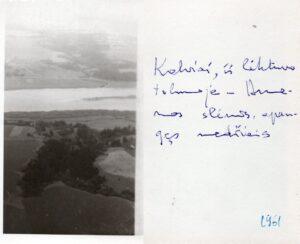 Kalviai, iš lėktuvo
tolumoje – Nemu-
nas slėnis, apau-
gęs medžiais
1961